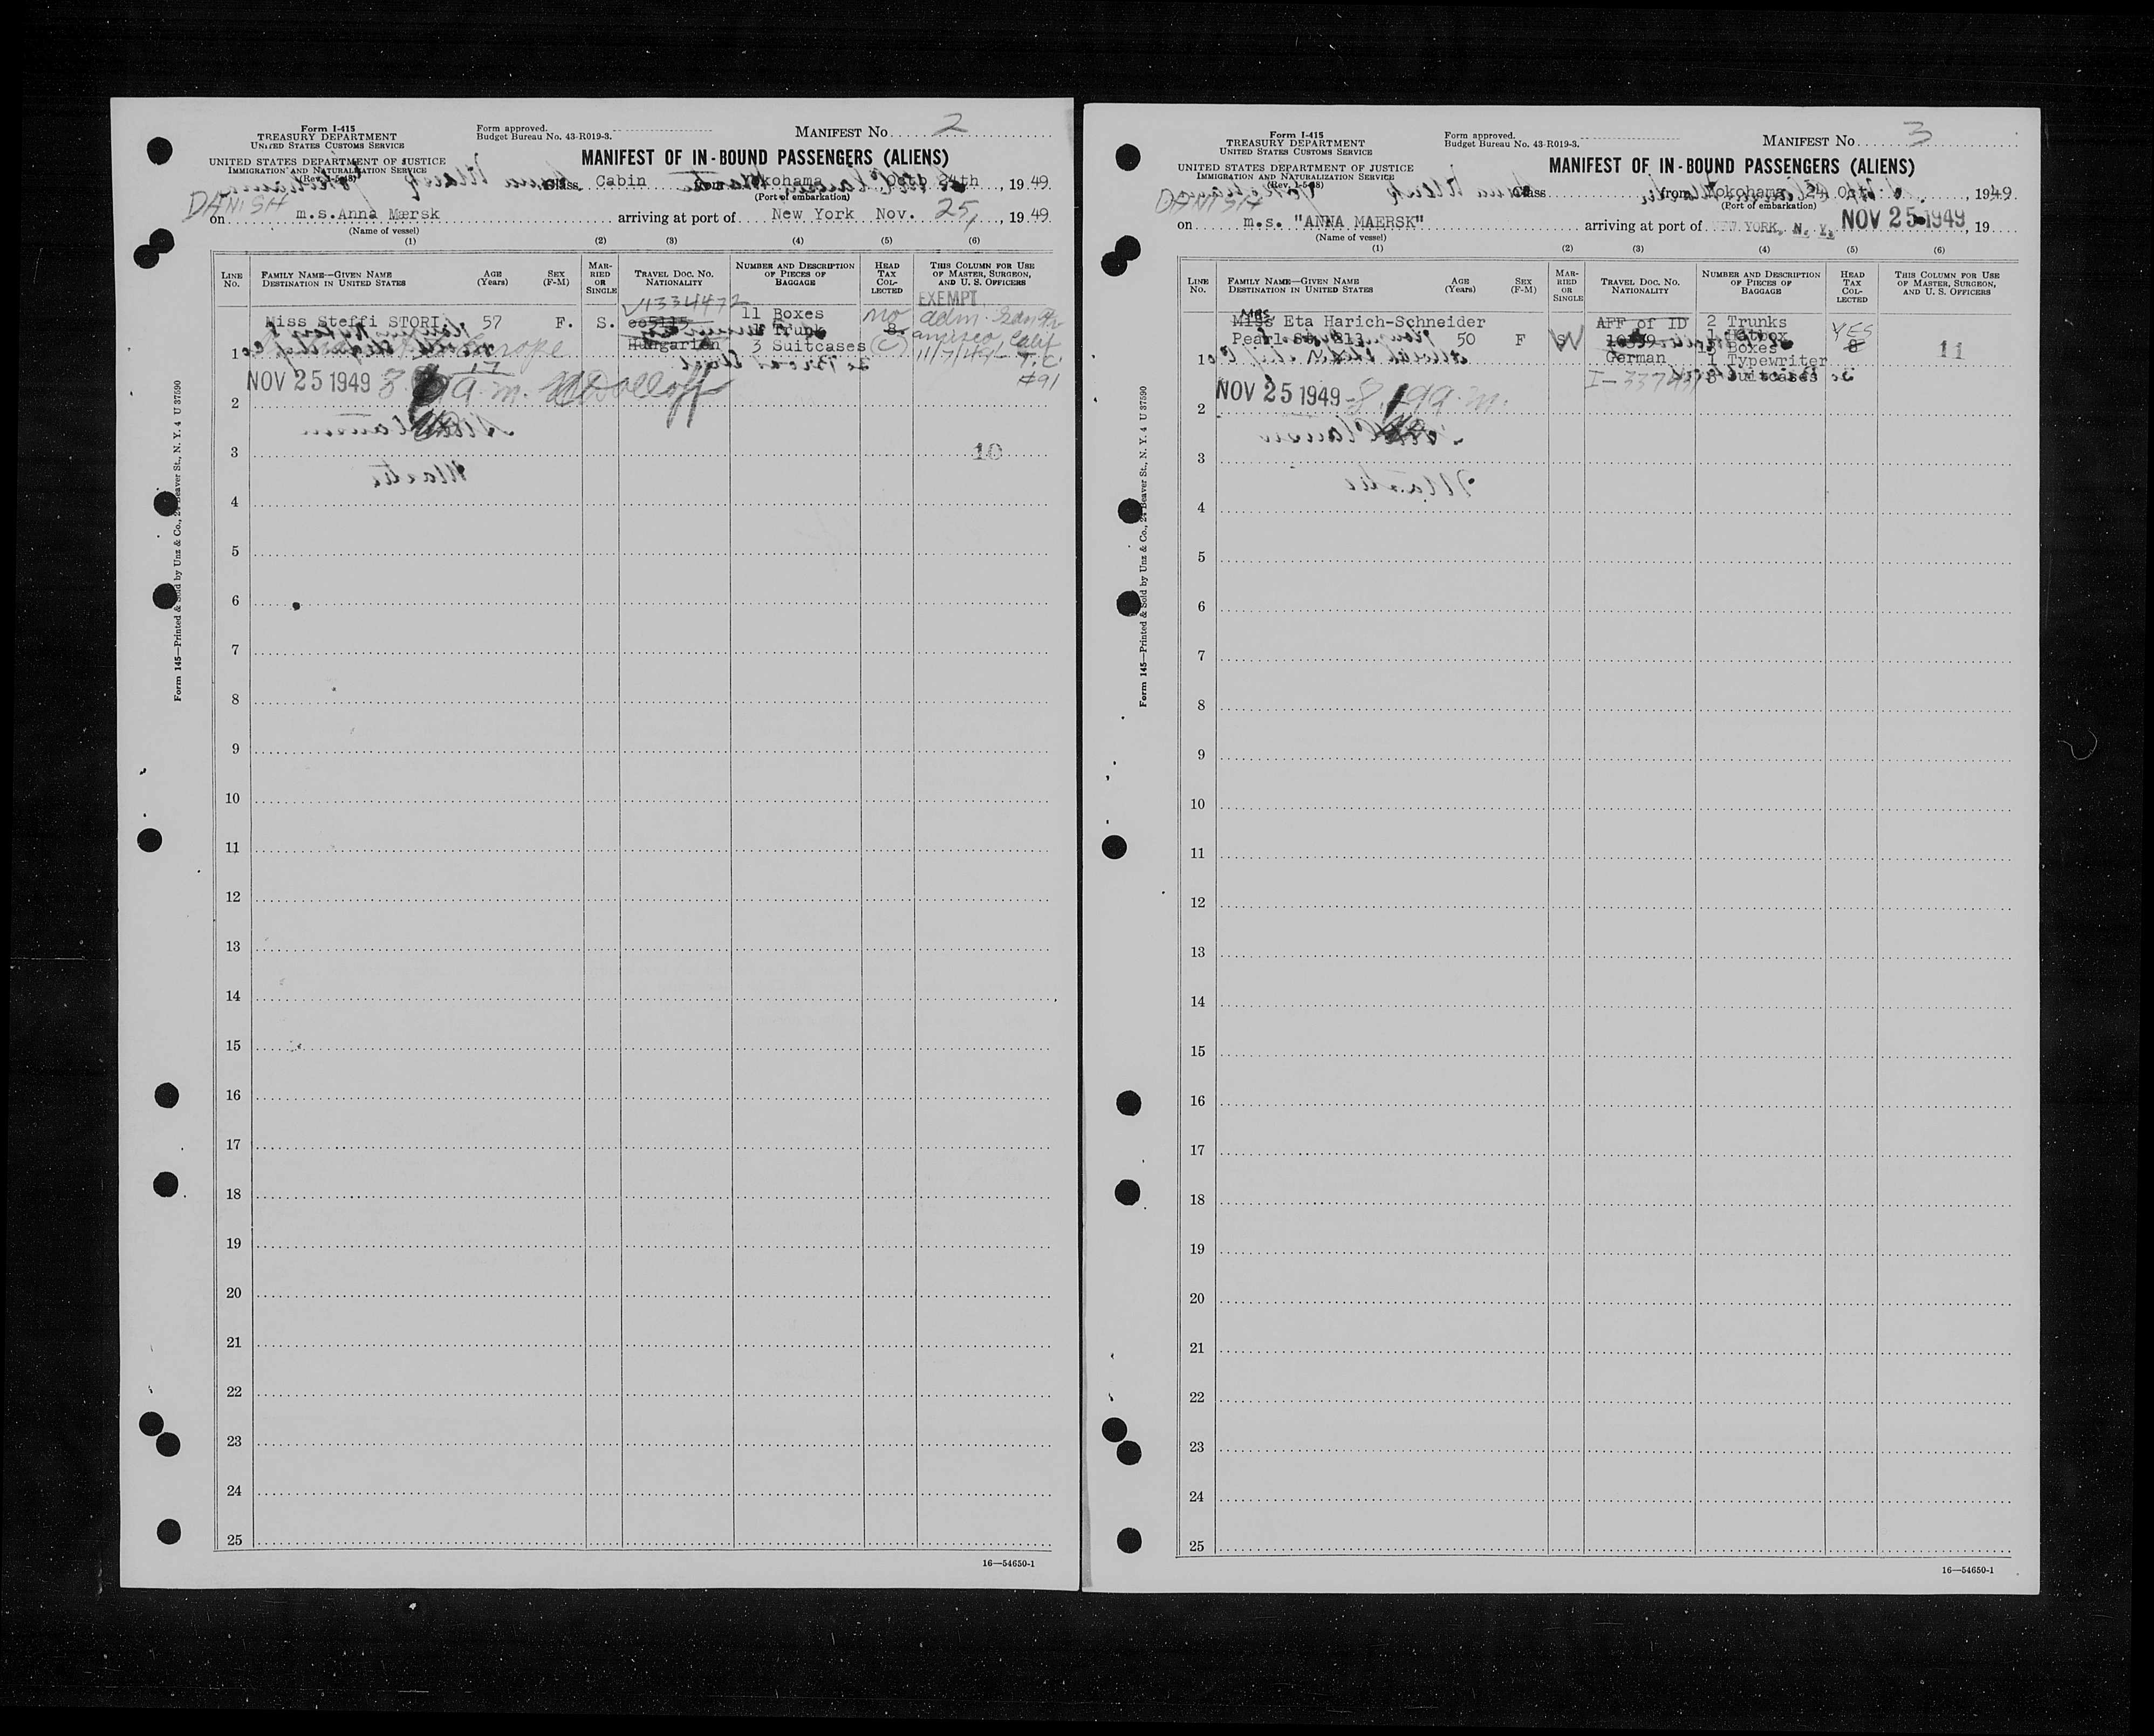 Form I-415
TREASURY DEPARTMENT
UNITED STATES CUSTOMS SERVICE
UNITED STATES DEPARTMENT OF JUSTICE
IMMIGRATION AND NATURALIZATION SERVICE
(Rev. 1-5-48)
Form approved.
Budget Bureau No. 43-R019-3.
MANIFEST No. 2
MANIFEST OF IN-BOUND PASSENGERS (ALIENS)
Class Cabin from Yokohama 24th, 1949
(Port of embarkation)
DANISH
on m.s. Anna Mærsk arriving at port of New York Nov. 25, 1949
(Name of vessel)
(1) (2) (3) (4) (5) (6)
LINE No.
FAMILY NAME—GIVEN NAME
DESTINATION IN UNITED STATES
AGE (Years)
SEX (F-M)
MARRIED OR SINGLE
TRAVEL DOC. NO. NATIONALITY
NUMBER AND DESCRIPTION OF PIECES OF BAGGAGE
HEAD TAX COLLECTED
THIS COLUMN FOR USE OF MASTER, SURGEON, AND U. S. OFFICERS
EXEMPT
V1334472
Miss Steffi STORI 57 F. S. Hungarian
11 Boxes
1 Trunk
3 Suitcases
NO
8
(C)
adm. San Fr
ancisco, Calif
T.C.
#91
1
NOV 25 1949 a.m.
2
3
10
4
5
6
7
8
9
10
11
12
13
14
15
16
17
18
19
20
21
22
23
24
25
16—54650-1
Form 145—Printed & Sold by Unz & Co., 24 Beaver St., N. Y. 4 U 37590
Form I-415
TREASURY DEPARTMENT
UNITED STATES CUSTOMS SERVICE
UNITED STATES DEPARTMENT OF JUSTICE
IMMIGRATION AND NATURALIZATION SERVICE
(Rev. 1-5-48)
Form approved.
Budget Bureau No. 43-R019-3.
MANIFEST No. 3
MANIFEST OF IN-BOUND PASSENGERS (ALIENS)
Class from Yokohama, 24 Oct., 1949
(Port of embarkation)
DANISH
on m.s. "ANNA MAERSK" arriving at port of NEW YORK, N. Y. NOV 25 1949, 19
(Name of vessel)
(1) (2) (3) (4) (5) (6)
LINE No.
FAMILY NAME—GIVEN NAME
DESTINATION IN UNITED STATES
AGE (Years)
SEX (F-M)
MARRIED OR SINGLE
TRAVEL DOC. NO. NATIONALITY
NUMBER AND DESCRIPTION OF PIECES OF BAGGAGE
HEAD TAX COLLECTED
THIS COLUMN FOR USE OF MASTER, SURGEON, AND U. S. OFFICERS
Mrs
Miss Eta Harich-Schneider
50 F S W
AFF of ID
German
2 Trunks
1 Hatbox
Boxes
1 Typewriter
3 Suitcases
YES
8
11
1
NOV 25 1949
2
3
4
5
6
7
8
9
10
11
12
13
14
15
16
17
18
19
20
21
22
23
24
25
16—54650-1
Form 145—Printed & Sold by Unz & Co., 24 Beaver St., N. Y. 4 U 37590